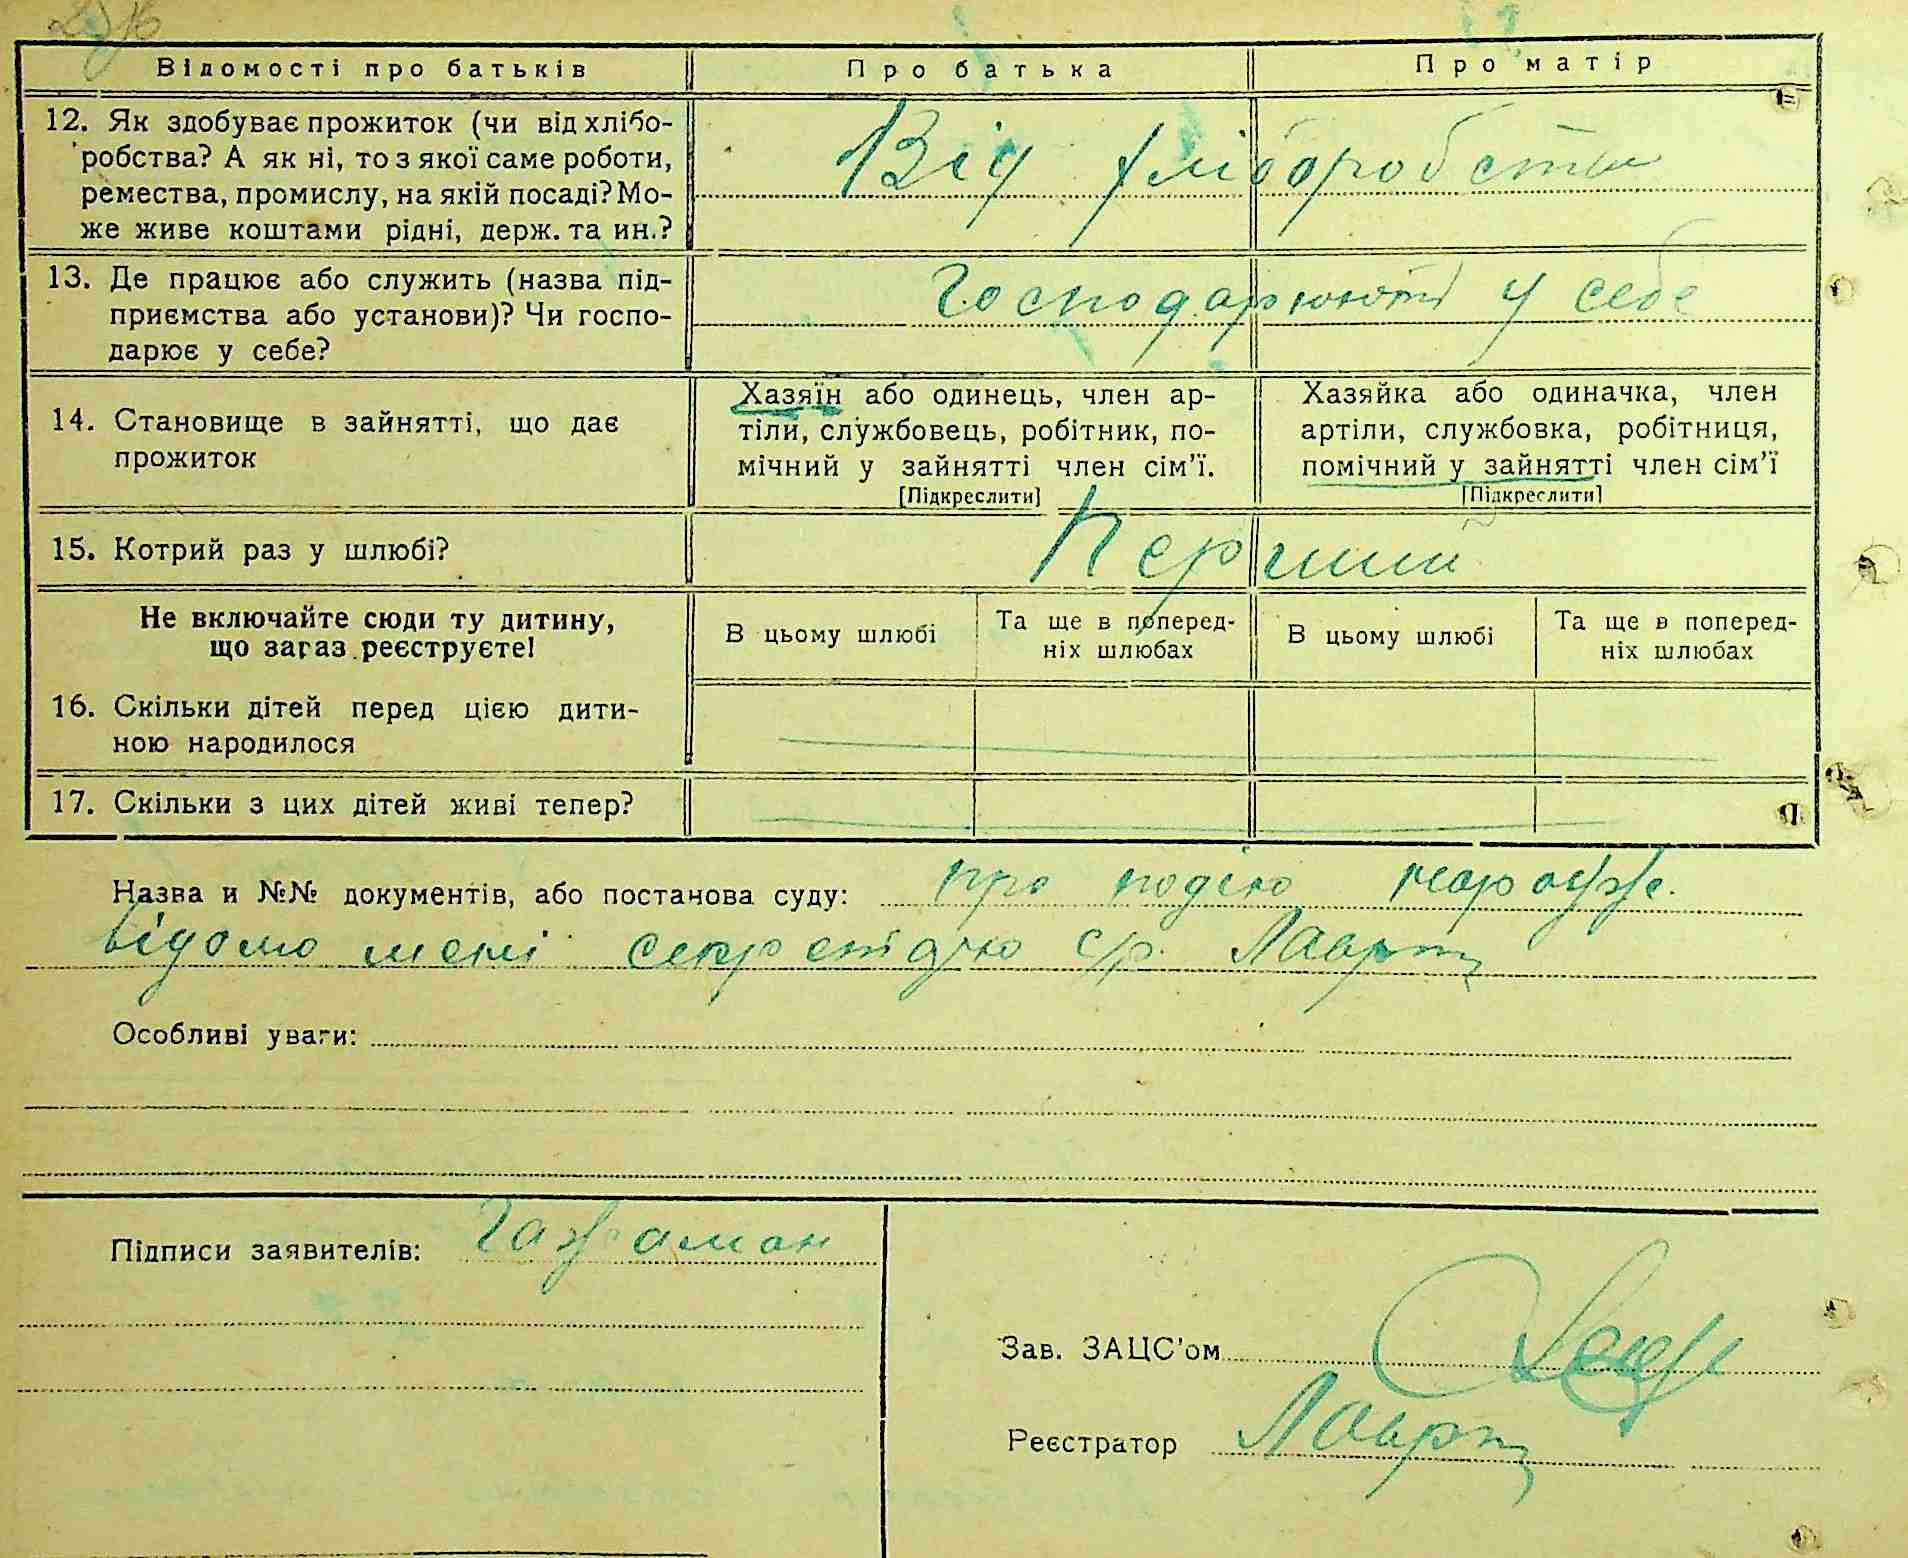 Відомості про батьків Про батька Про матір
12. Як здобуває прожиток (чи від хлібо-
робства? А як ні, то з якої саме роботи,
ремества, промислу, на якій посаді? Мо-
же живе коштами рідні, держ. та ин.?
Від хліборобства
13. Де працює або служить (назва під-
приємства або установи)? Чи госпо-
дарює у себе?
Господарюють у себе
14. Становище в зайнятті, що дає
прожиток
Хазяїн або одинець, член ар-
тіли, службовець, робітник, по-
мічний у зайнятті член сім'ї.
[Підкреслити]
Хазяйка або одиначка, член
артіли, службовка, робітниця,
помічний у зайнятті член сім'ї
[Підкреслити]
15. Котрий раз у шлюбі?
Перший
Не включайте сюди ту дитину,
що зараз реєструєте!
В цьому шлюбі
Та ще в поперед-
ніх шлюбах
В цьому шлюбі
Та ще в поперед-
ніх шлюбах
16. Скільки дітей перед цією дити-
ною народилося
17. Скільки з цих дітей живі тепер?
Назва и №№ документів, або постанова суду: про подію народж.
відомо мені секретарю с/р.
Особливі уваги:
Підписи заявителів:
Зав. ЗАЦС'ом
Реєстратор